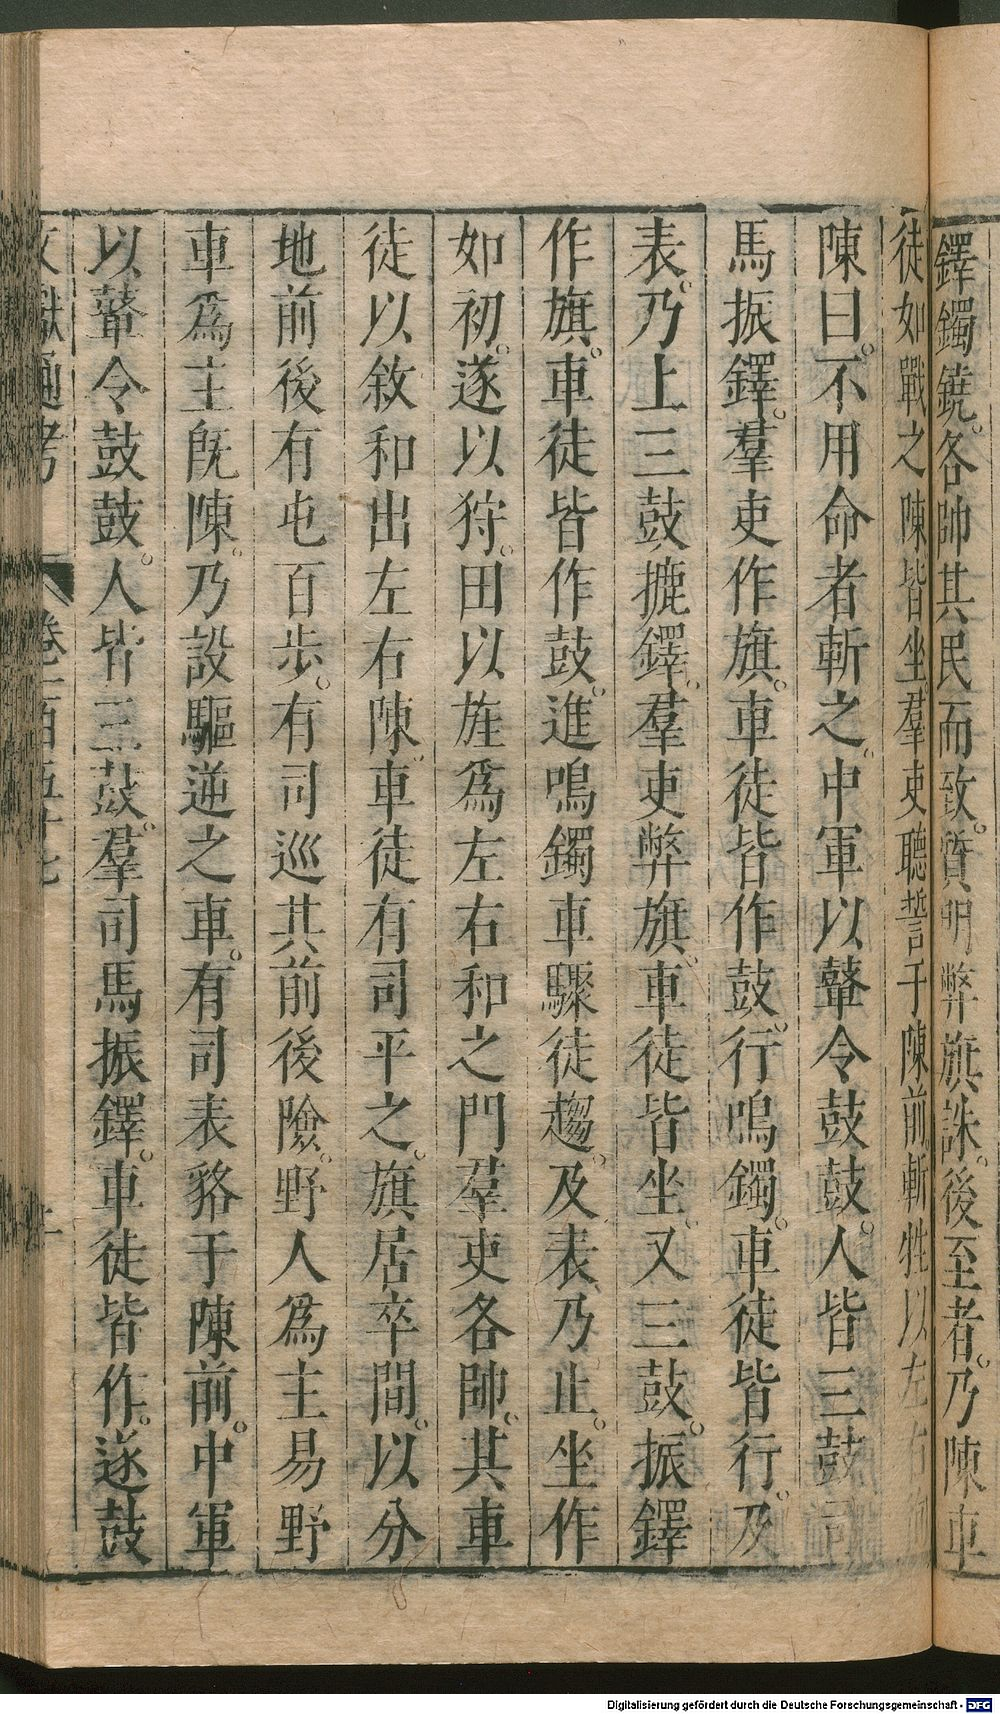 鐸鐲鐃。各帥其民而致。質明弊旗誅。後至者。乃陳車
徒如戰之陳皆坐。羣吏聽誓于陳前。斬牲以左右徇
陳曰。不用命者斬之。中軍以鼙令鼓鼓。人皆三鼓司
馬振鐸。羣吏作旗。車徒皆作鼓。行鳴鐲。車徒皆行。及
表。乃上三鼓摝鐸。羣吏弊旗。車徒皆坐。又三鼓。振鐸
作旗。車徒皆作鼓。進鳴鐲車驟徒趨。及表乃止。坐作
如初。遂以狩。田以旌爲左右和之門羣吏各帥。其車
徒以敘和出左右陳。車徒有司平之。旗居卒間。以分
地前後有屯百步。有司巡其前後險。野人爲主易野
車爲主旣陳。乃設驅逆之車。有司表貉于陳前。中軍
以鼙令鼓鼓。人皆三鼓。羣司馬振鐸。車徒皆作。遂鼓
文獻通考 卷一百五十七
Digitalisierung gefördert durch die Deutsche Forschungsgemeinschaft - DFG